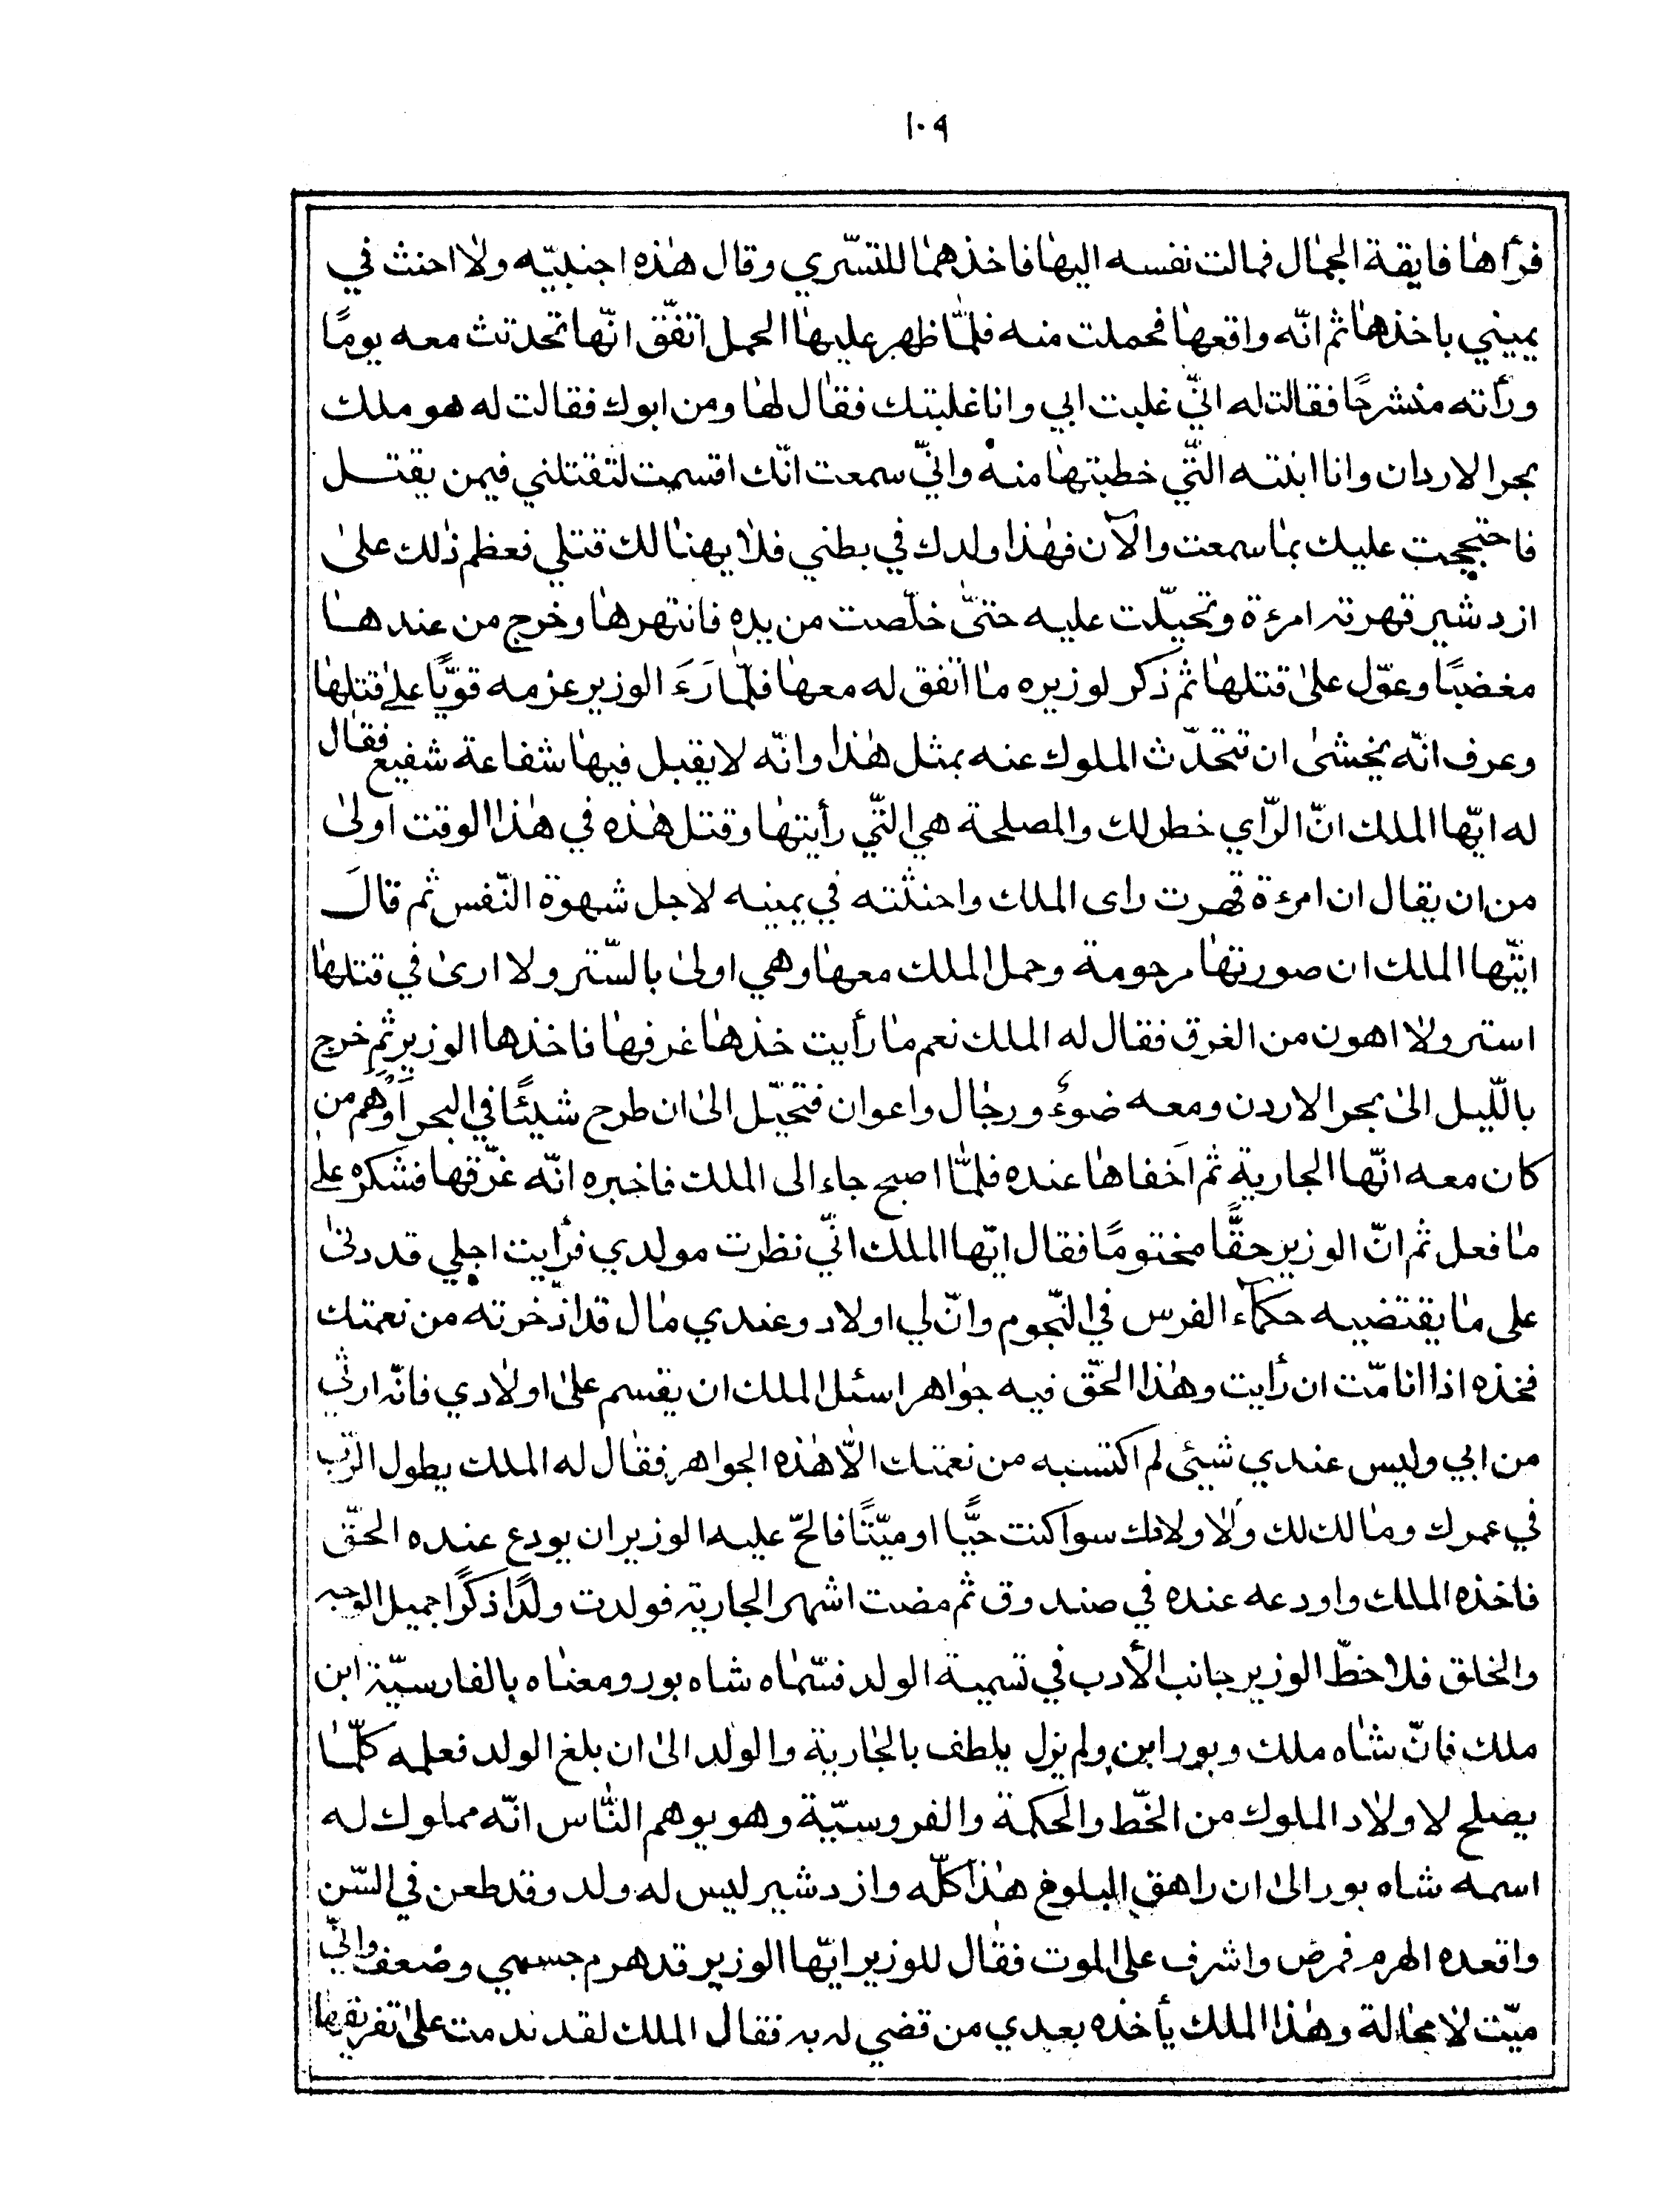 ١٠٩
فرأها فايقة الجمال فمالت نفسه اليها فاخذهما للتسّري وقال هذه اجنبيّه ولا احنث في
يميني باخذها ثم انّه واقعها فحملت منه فلمّا ظهر عليها الحمل اتفّق انّها تحدثت معه يومًا
ورأته منشرحًا فقالت له انّي غلبت ابي وانا غلبتك فقال لها ومن ابوك فقالت له هو ملك
بحر الاردان وانا ابنته التّي خطبتها منه وانّي سمعت انّك اقسمت لتقتلني فيمن يقتل
فاحتججت عليك بما سمعت والآن فهذا ولدك في بطني فلا يهنا لك قتلي فعظم ذلك على
ازدشير قهرته امرءة وتحيّلت عليه حتىّ خلّصت من يده فانتهرها وخرج من عندها
مغضبًا وعوّل على قتلها ثم ذكر لوزيره ما اتفق له معها فلمّا رَءَ الوزير عزمه قويًّا على قتلها
وعرف انّه يخشى ان تتحّدث الملوك عنه بمثل هذا وانّه لا يقبل فيها شفاعة شفيع فقال
له ايّها الملك انّ الرّاي خطر لك والمصلحة هي التّي رأيتها وقتل هذه في هذا الوقت اولى
من ان يقال ان امرءة قهرت راى الملك واحنثته في يمينه لاجل شهوة النّفس ثم قالَ
ايّها الملك ان صورتها مرحومة وحمل الملك معها وهي اولى بالسّتر ولا ارى في قتلها
استر ولا اهون من الغرق فقال له الملك نعم ما رأيت خذها غرفها فاخذها الوزير ثم خرج
باللّيل الى بحر الاردن ومعه ضوءٌ ورجال واعوان فتحيّل الى ان طرح شيئًا في البحر اَوْهَم من
كان معه انّها الجارية ثم اَخفاها عنده فلمّا اصبح جاء الى الملك فاخبره انّه غرّقها فشكره على
ما فعل ثم انّ الوزير حقًّا مختومًا فقال ايّها الملك انّي نظرت مولدي فرأيت اجلي قد دنى
على ما يقتضيه حكمآء الفرس في النّجوم وانّ لي اولاد وعندي مال قد اذّخرته من نعمتك
فخذه اذا انا متّ ان رأيت وهذا الحّق فيه جواهر اسئل الملك ان يقسم على اولادي فانّه ارثي
من ابي وليس عندي شيئ لم اكتسبه من نعمتك الاّ هذه الجواهر فقال له الملك يطول الرّب
في عمرك ومالك لك وَلاولادك سوآ كنت حيًّا او ميّتًا فالحّ عليه الوزير ان يودع عنده الحّق
فاخذه الملك واودعه عنده في صندوق ثم مضت اشهر الجارية فولدت ولدًا ذكرًا جميل الوجه
والخلق فلاحظّ الوزير جانب الأدب في تسمية الولد فسّماه شاه بور ومعناه بالفارسيّة ابن
ملك فانّ شاه ملك وبور ابن ولم يزل يلطف بالجارية والولد الى ان بلغ الولد فعلمه كلّما
يصلح لاولاد الملوك من الخّط والحكمة والفروسيّة وهو يوهم النّاس انّه مملوك له
اسمه شاه بور الى ان راهق البلوغ هذا كلّه وازدشير ليس له ولد وقد طعن في السّن
واقعده الهرم فمرض واشرف على الموت فقال للوزير ايّها الوزير قد هرم جسمي وضعف وانّي
ميّت لا محالة وهذا الملك يأخذه بعدي من قضي له به فقال الملك لقد ندمت على تفريقها